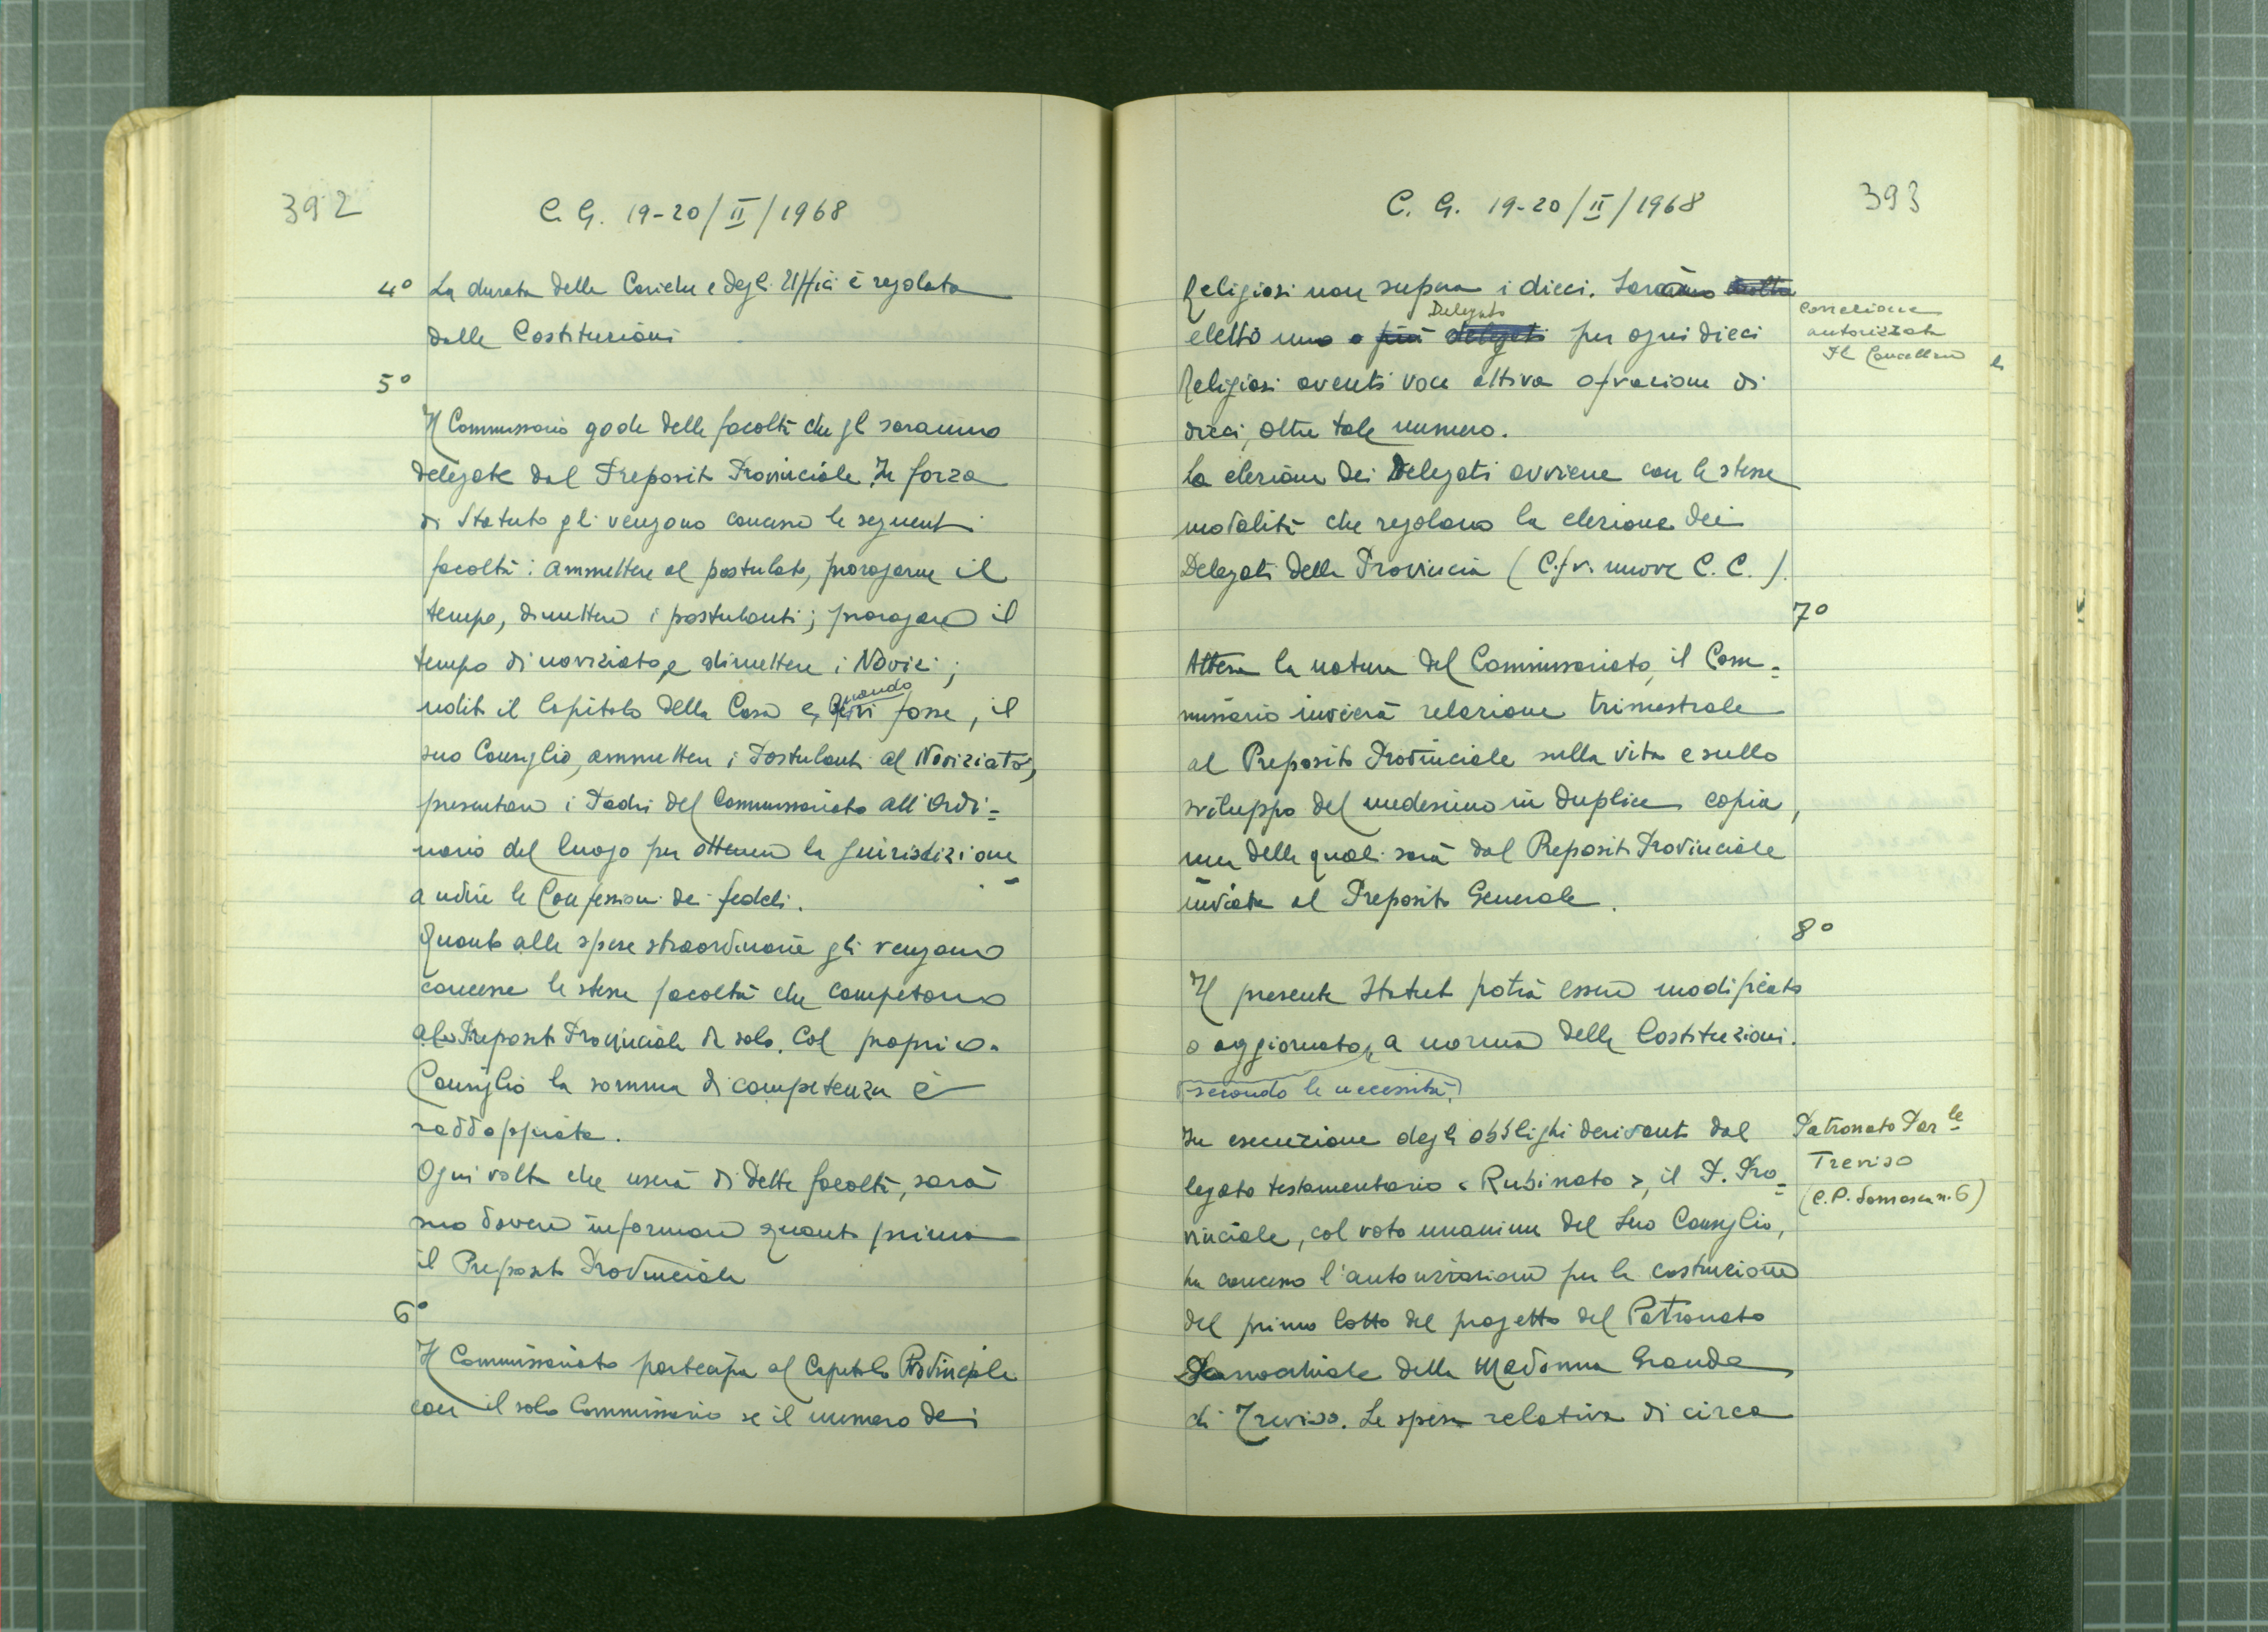 392
C. G. 19-20/II/1968
4° La durata delle Cariche e degli Uffici è regolata
dalle Costituzioni
5°
Il Commissario gode delle facoltà che gli saranno
delegate dal Preposito Provinciale. In forza
di Statuto gli vengono concesse le seguenti
facoltà: ammettere al postulato, prorogarne il
tempo, dimettere i postulanti; prorogare il
tempo di noviziato e dimettere i Novizi;
udito il Capitolo della Casa e, quando
vi fosse, il
suo Consiglio, ammettere i Postulanti al Noviziato,
presentare i Padri del Commissariato all'Ordi=
nario del luogo per ottenere la giurisdizione
a udire le Confessioni dei fedeli.
Quanto alle spese straordinarie gli vengono
concesse le stesse facoltà che competono
al Preposito Provinciale da solo. Col proprio
Consiglio la somma di competenza è
raddoppiata.
Ogni volta che userà di dette facoltà, sarà
suo dovere informare quanto prima
il Preposito Provinciale
6°
Il Commissariato partecipa al Capitolo Provinciale
con il solo Commissario se il numero dei
C. G. 19-20/II/1968
393
Religiosi non supera i dieci. Sarà
Delegato
eletto uno o più delegati per ogni dieci
Religiosi aventi voce attiva o frazione di
dieci, oltre tale numero.
La elezione dei Delegati avviene con le stesse
modalità che regolano la elezione dei
Delegati della Provincia (Cfr. nuove C. C.).
correzione
autorizzata
Il Cancelliere
7°
Attesa la natura del Commissariato, il Com=
missario invierà relazione trimestrale
al Preposito Provinciale sulla vita e sullo
sviluppo del medesimo in duplice copia,
una delle quali sarà dal Preposito Provinciale
inviata al Preposito Generale.
8°
Il presente Statuto potrà essere modificato
o aggiornato, a norma delle Costituzioni.
secondo le necessità,
In esecuzione degli obblighi derivanti dal
legato testamentario «Rubinato», il P. Pro=
vinciale, col voto unanime del Suo Consiglio,
ha concesso l'autorizzazione per la costruzione
del primo lotto del progetto del Patronato
Parrocchiale della Madonna Grande
di Treviso. Le spese relative di circa
Patronato Par.le
Treviso
(C.P. Somasca n. 6)